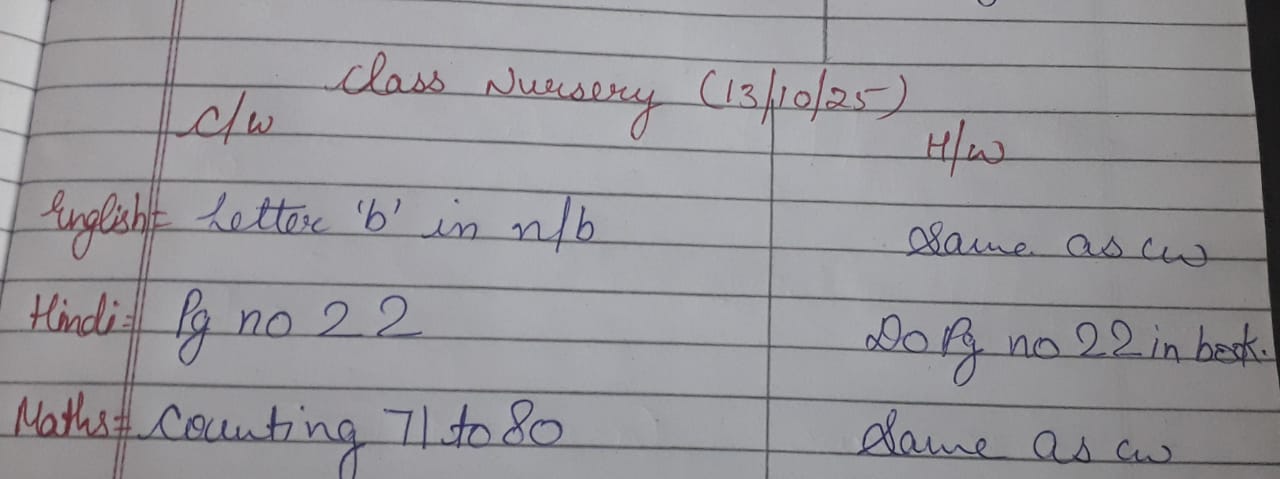 Class Nursery (13/10/25)
C/W H/W
English = Letter 'b' in n/b Same as cw
Hindi = Pg no 22 Do Pg no 22 in book.
Maths = Counting 71 to 80 Same as cw